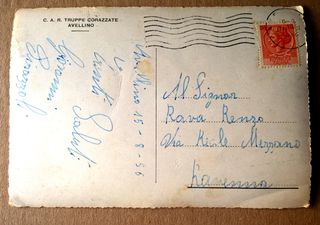 C. A. R. TRUPPE CORAZZATE
AVELLINO
Avellino 15-8-56
Saluti
Giovanni
Al Signor
Rava Renzo
Via Mezzano
Ravenna